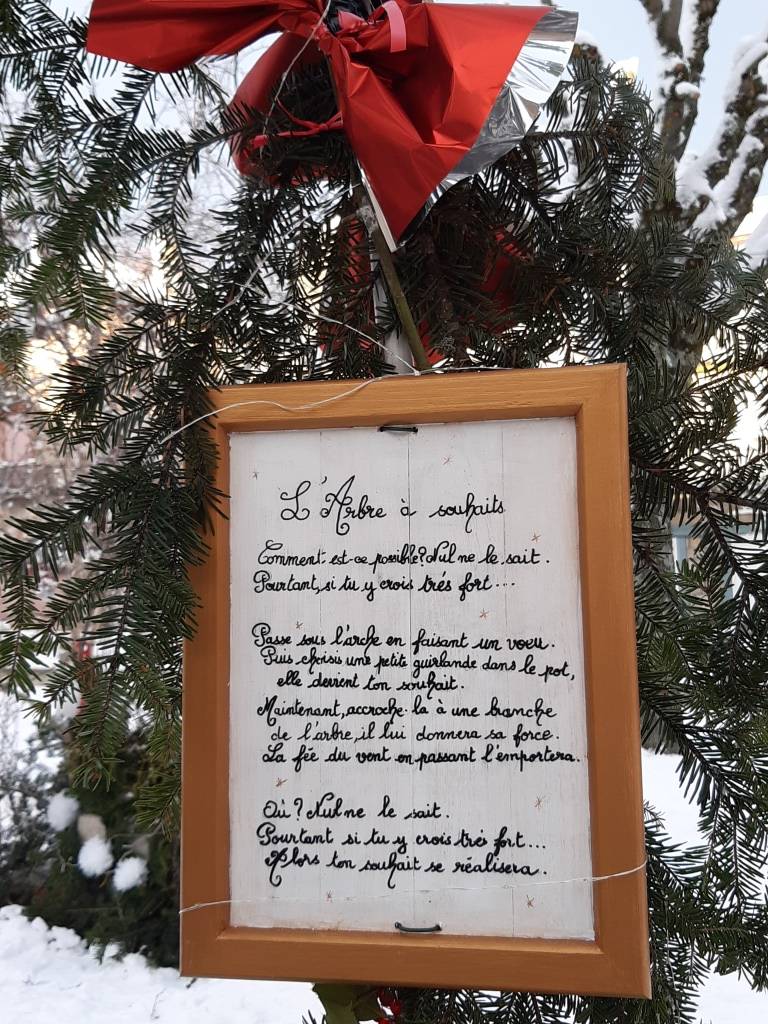 L'Arbre à souhaits
Comment est-ce possible? Nul ne le sait.
Pourtant, si tu y crois trés fort...
Passe sous l'arche en faisant un voeu.
Puis choisis une petite guirlande dans le pot,
elle devient ton souhait.
Maintenant, accroche-la à une branche
de l'arbre, il lui donnera sa force.
La fée du vent en passant l'emportera.
Où? Nul ne le sait.
Pourtant si tu y crois trés fort...
Alors ton souhait se réalisera.